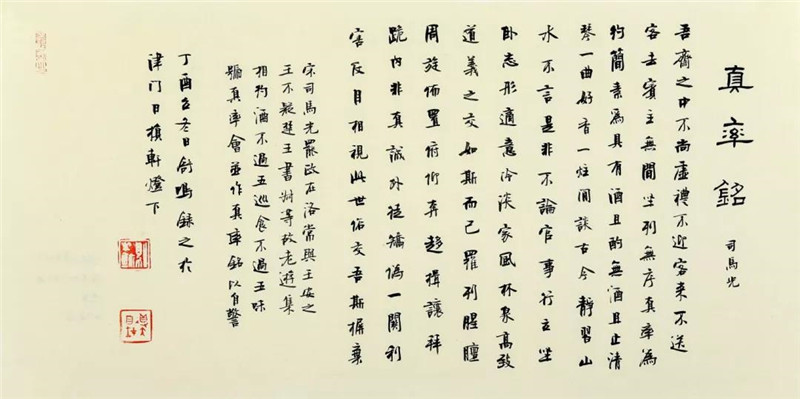 真率銘
司馬光
吾齋之中不尚虛禮不迎客來不送
客去賓主無間坐列無序真率為
約簡素為具有酒且酌無酒且止清
琴一曲好香一炷閒談古今靜習山
水不言是非不論官事行立坐
卧忘形適意冷淡家風林泉高致
道義之交如斯而已羅列腥膻
周旋佈置俯仰奔趨揖讓拜
跪內非真誠外徒矯偽一關利
害反目相視此世俗交吾斯摒棄
宋司馬光罷政在洛常與王安之
王不疑楚王書等故老遊集
相約酒不過五巡食不過五味
號真率會並作真率銘以自警
丁酉冬日舒鳴錄之於
津門日損軒燈下